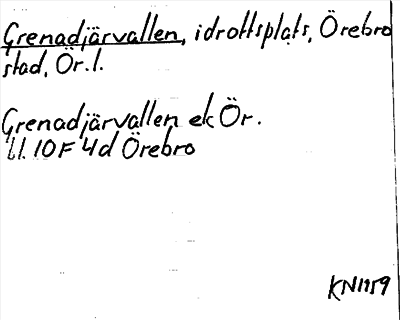 Grenadjärvallen, idrottsplats, Örebro
stad, Ör. l.
Grenadjärvallen ek Ör.
bl. 10F 4d Örebro